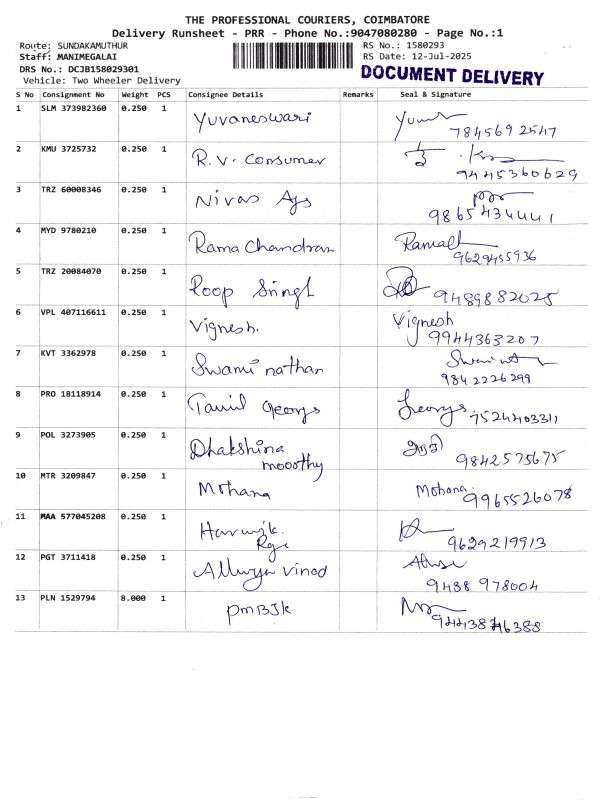 THE PROFESSIONAL COURIERS, COIMBATORE
Delivery Runsheet - PRR - Phone No.:9047080280 - Page No.:1
Route: SUNDAKAMUTHUR RS No.: 1580293
Staff: MANIMEGALAI RS Date: 12-Jul-2025
DRS No.: DCJB158029301 DOCUMENT DELIVERY
Vehicle: Two Wheeler Delivery
S No Consignment No Weight PCS Consignee Details Remarks Seal & Signature
1 SLM 373982360 0.250 1 Yuvaneswari
7845692547
2 KMU 3725732 0.250 1 R.V. Consumer
9445360629
3 TRZ 60008346 0.250 1 Nivas Ags
9865434441
4 MYD 9780210 0.250 1 Rama Chandran
9629455936
5 TRZ 20084070 0.250 1 Roop Singh
9489882025
6 VPL 407116611 0.250 1 Vignesh. Vignesh
9944363207
7 KVT 3362978 0.250 1 Swami nathan
9842226299
8 PRO 18118914 0.250 1 Tamil Georgs Georgs
7524403311
9 POL 3273905 0.250 1 Dhakshina
moorthy 9842575675
10 MTR 3209847 0.250 1 Mohana Mohana
9965526078
11 MAA 577045208 0.250 1
9629219913
12 PGT 3711418 0.250 1 Vinod
9488 978004
13 PLN 1529794 8.000 1 PMBJK